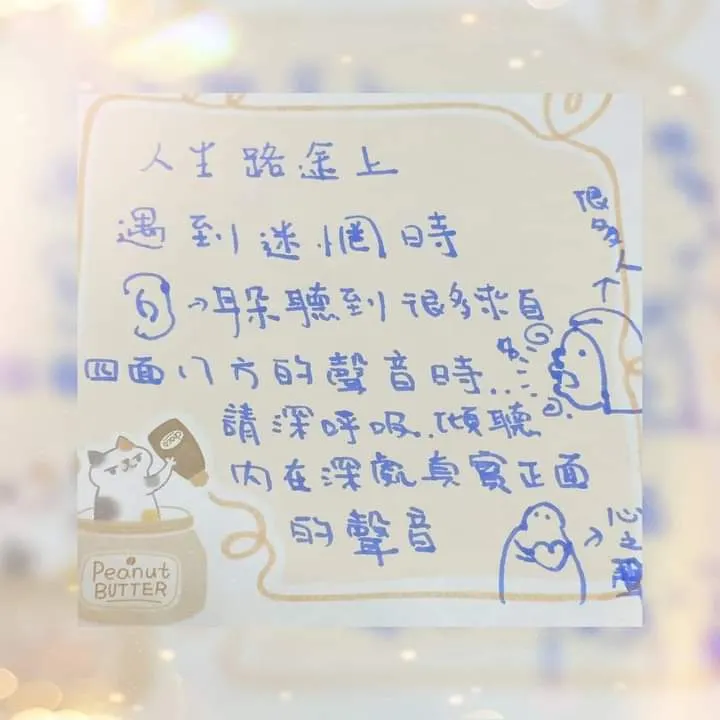 人生路途上
遇到迷惘時
耳朵聽到很多來自
四面八方的聲音時...
請深呼吸.傾聽
內在深處真實正面
的聲音
很多人
心之聲
Peanut
BUTTER